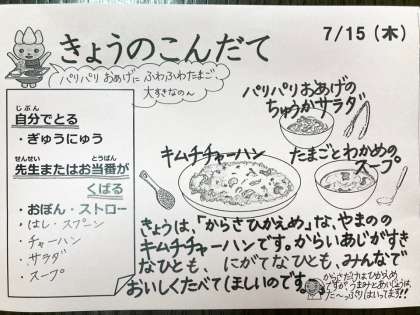 きょうのこんだて
7/15（木）
パリパリ おあげに ふわふわたまご
大すきなのん
じぶん
自分でとる
・ぎゅうにゅう
せんせい とうばん
先生またはお当番が
くばる
・おぼん・ストロー
・はし・スプーン
・チャーハン
・サラダ
・スープ
パリパリおあげの
ちゅうかサラダ
キムチチャーハン
たまごとわかめの
スープ
きょうは、「からさひかえめ」な、やまのの
キムチチャーハンです。からいあじがすき
なひとも、にがてなひとも、みんなで
おいしくたべてほしいのです。
からさだけはひかえめ
ですが、うまみとあいじょうは
た～っぷりはいってます!!